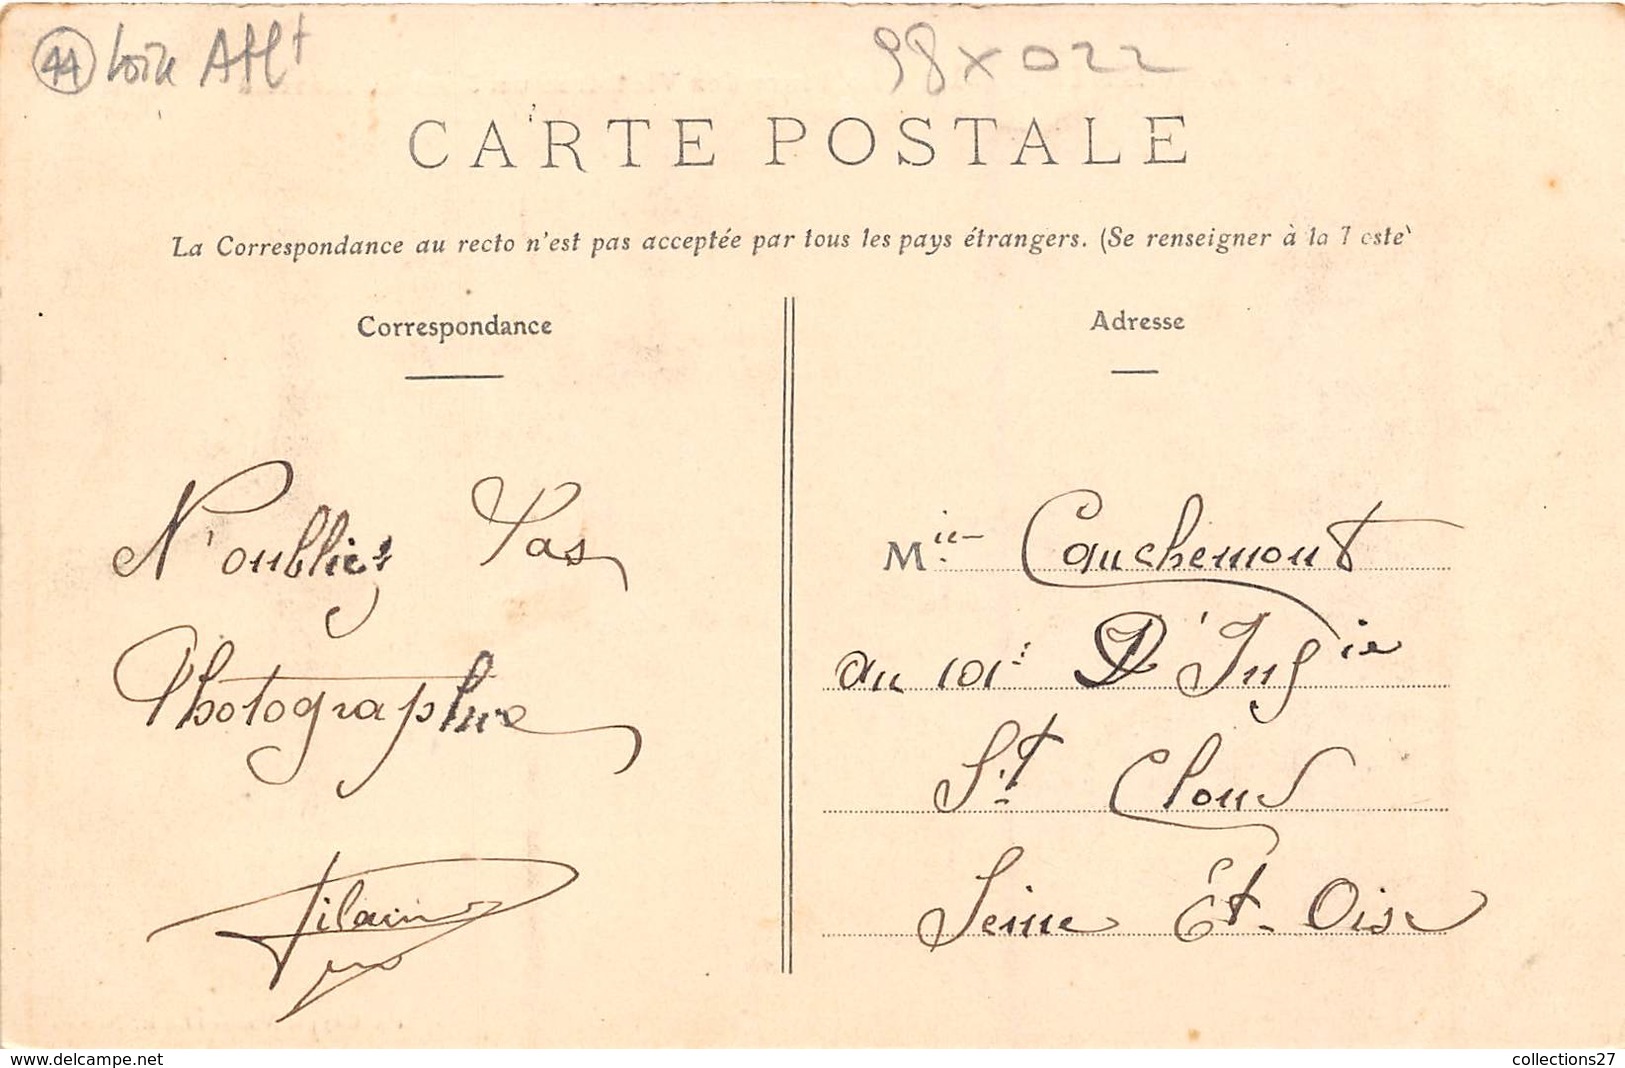 44 Loire Atlt
98x022
CARTE POSTALE
La Correspondance au recto n'est pas acceptée par tous les pays étrangers. (Se renseigner à la Poste)
Correspondance
N'oubliez Pas
Photographie
Vilain
Adresse
Mlle Cauchemont
au 101e D'Infie
St Cloud
Seine Et. Oise
www.delcampe.net
collections27